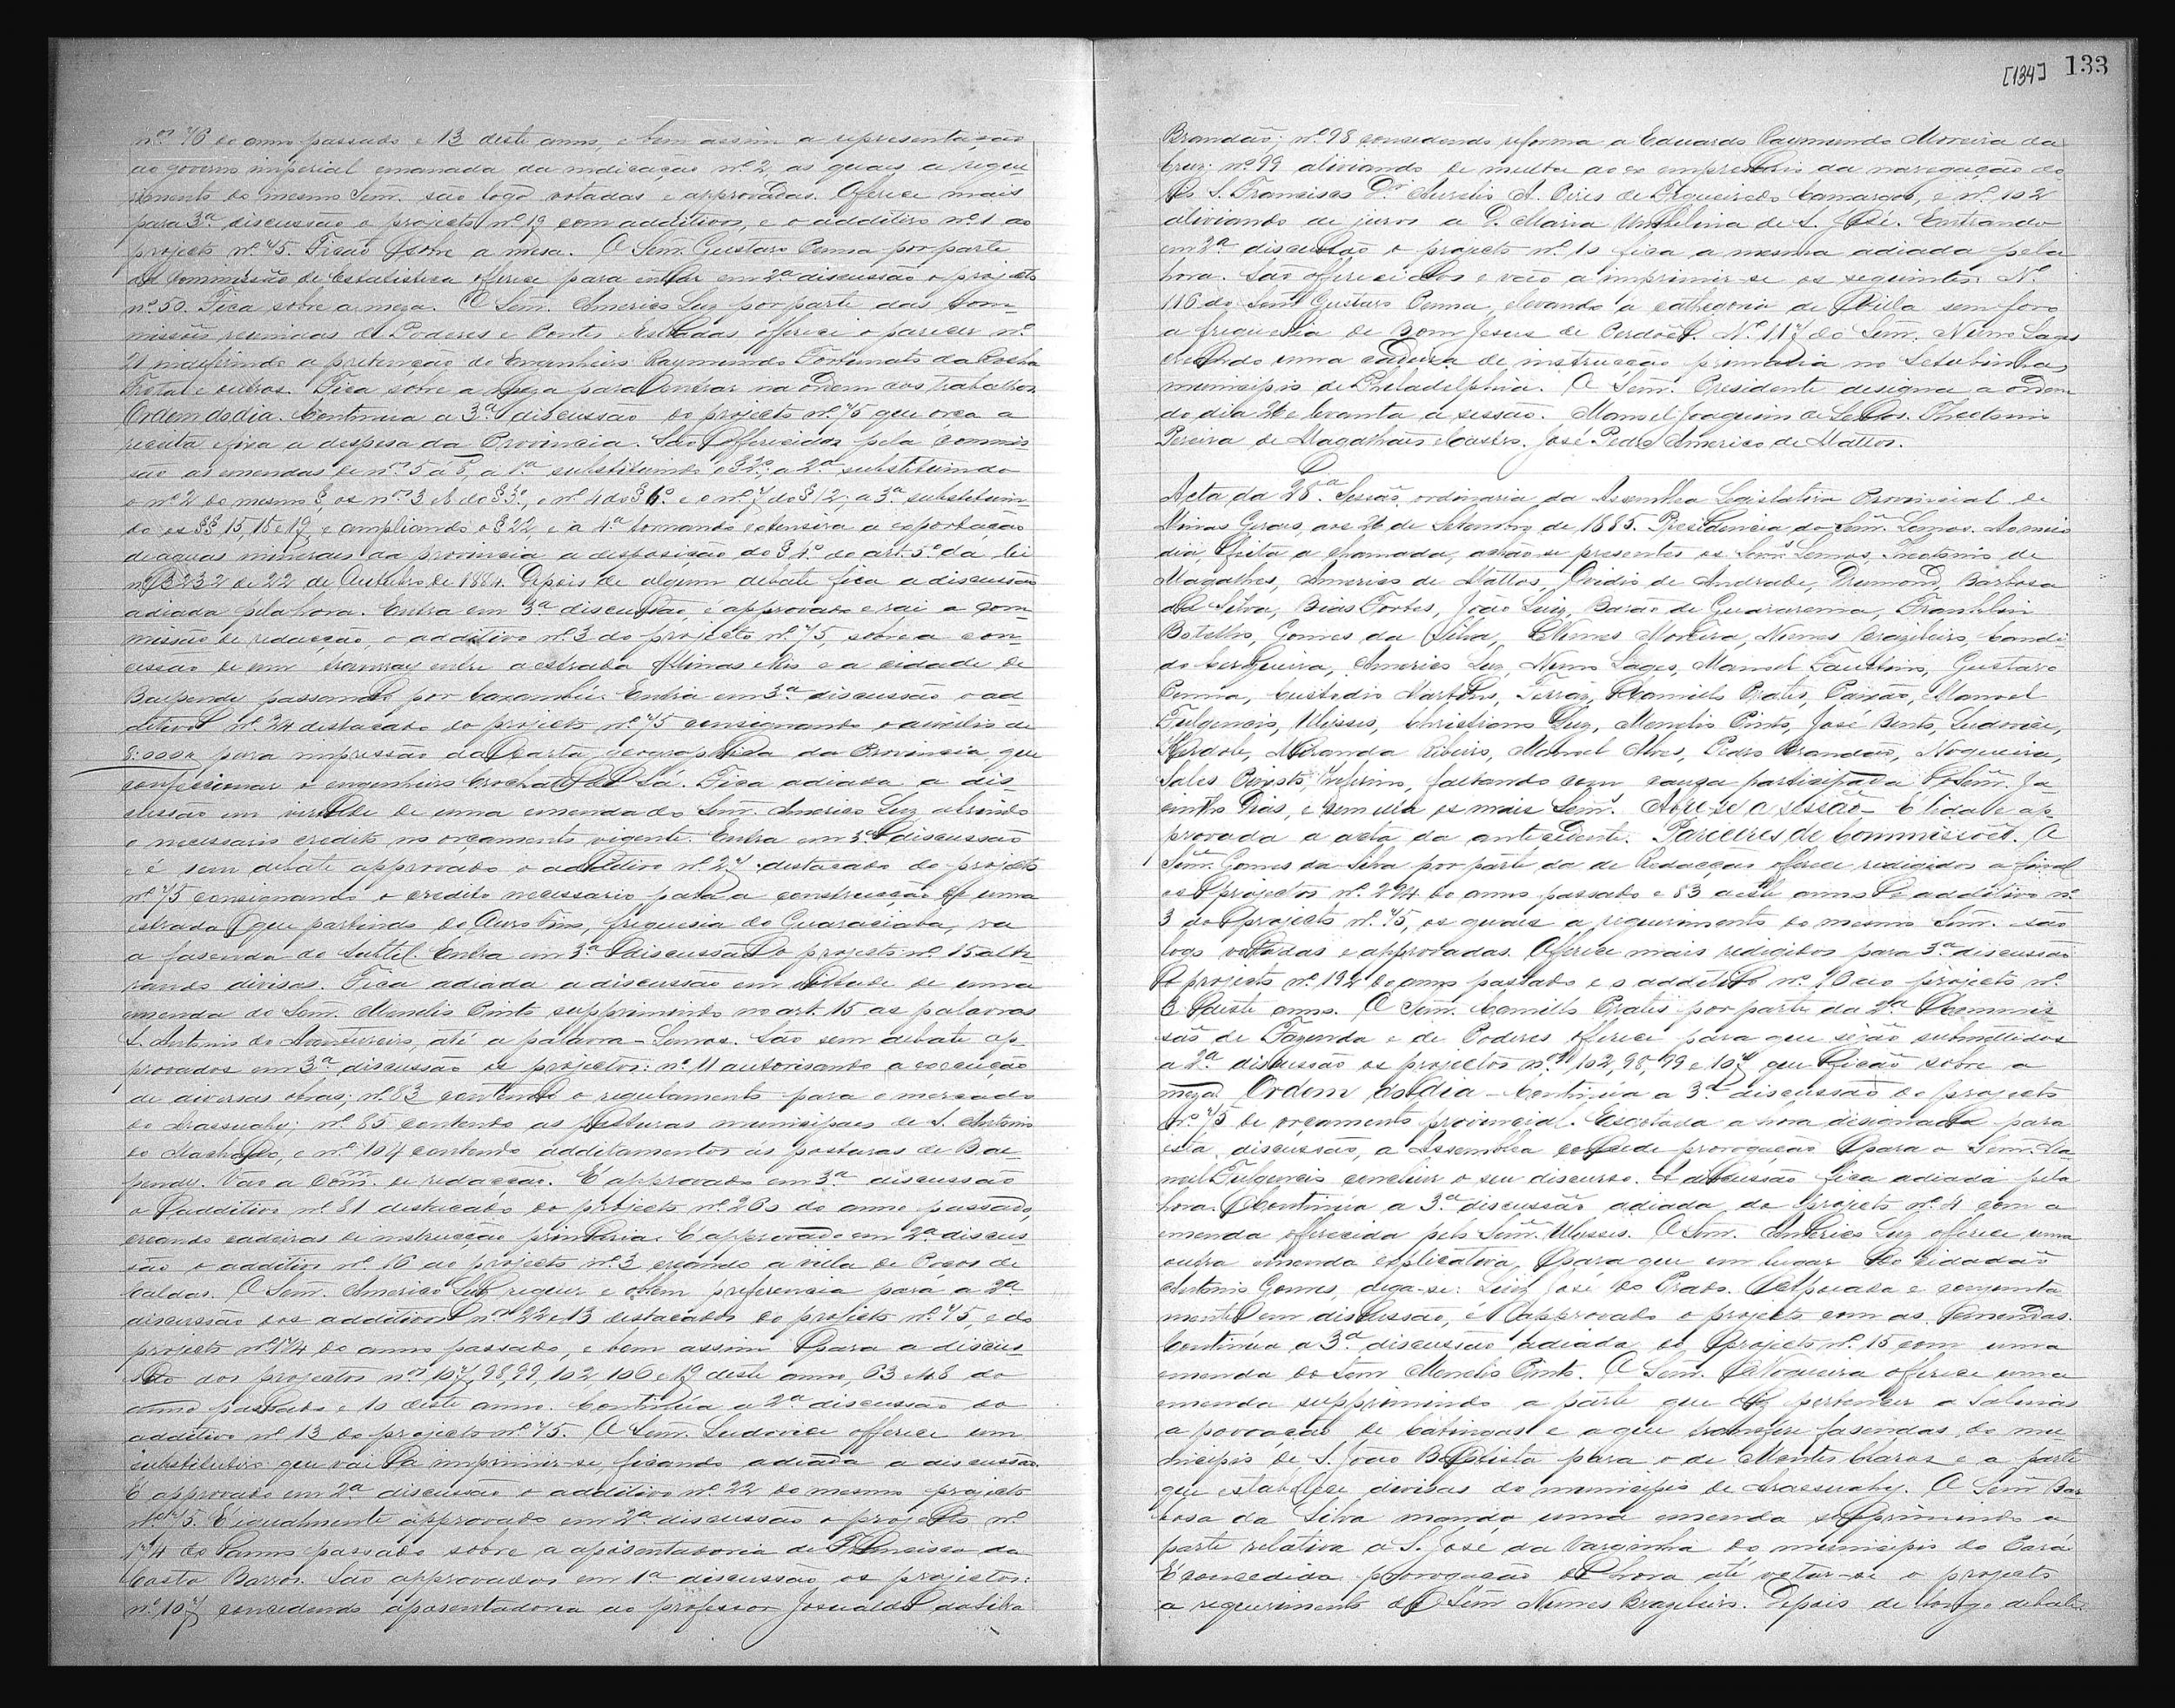 nos 76 do anno passado e 13 deste anno, e bem assim a representação
ao governo imperial emanada da indicação nº 2, as quaes a reque
rimento do mesmo Senr. são logo votadas e approvadas. Offerece mais
para 3ª discussão o projecto nº 19 com additivos, e o additivo nº 1 ao
projecto nº 45. Ficão sobre a mesa. O Senr. Gustavo Penna por parte
da Commissão de Estatistica offerece para entrar em 2ª discussão o projecto
nº 50. Fica sobre a meza. O Senr. Americo Luz por parte das Com-
missões reunidas de Poderes e Pontes e Estradas offerece o parecer nº
21 indeferindo a pretenção do Engenheiro Raymundo Fortunato da Rocha
Frota e outros. Fica sobre a meza para entrar na ordem dos trabalhos.
Ordem do dia. Continua a 3ª discussão do projecto nº 75 que orça a
receita e fixa a despesa da Provincia. São offerecidas pela commis
são as emendas de nos 5 a 8, a 1ª substituindo o § 2º, a 2ª substituindo
o nº 2 do mesmo §, os nos 3 e do § 3º, e nº 4 do § 6º e o nº 7 do § 12; a 3ª substituin-
do os §§ 15, 18 e 19 e ampliando o § 22, e a 4ª tornando extensiva a exportação
de aguas mineraes da provincia a disposição do § 4º do art. 5º da lei
nº 3232 de 22 de Outubro de 1884. Depois de algum debate fica a discussão
adiada pela hora. Entra em 3ª discussão, é approvado e vai a com-
missão de redacção, o additivo nº 3 do projecto nº 75, sobre a con-
cessão de um tramway entre a estrada Minas e Rio e a cidade de
Baependy passando por Caxambú. Entra em 3ª discussão o ad-
ditivo nº 24 destacado do projecto nº 75 consignando o auxilio de
8:000$ para impressão da Carta geographica da Provincia que
confeccionar o engenheiro Crochat de Sá. Fica adiada a dis-
cussão em virtude de uma emenda do Senr. Americo Luz abrindo
o necessario credito no orçamento vigente. Entra em 3ª discussão
e é sem debate approvado o additivo nº 27 destacado do projecto
nº 75 consignando o credito necessario para a construcção de uma
estrada que partindo de freguesia do Guaraciaba, va
a fasenda do Entra em 3ª discussão o projecto nº 15 alte-
rando divisas. Fica adiada a discussão em virtude de uma
emenda do Senr. Menelio Pinto supprimindo no art. 15 as palavras
S. Antonio do Aventureiro, até a palavra - Lemos. São sem debate ap-
provados em 3ª discussão os projectos: nº 11 autorisando a execução
de diversas obras; nº 83 contendo o regulamento para o mercado
do Arassuahy; nº 85 contendo as posturas municipaes de S. Antonio
do Machado, e nº 104 contendo additamentos ás posturas de Bae
pendy. Vão a Comm. de redacção. É approvado em 3ª discussão
o additivo nº 81 destacado do projecto nº 260 do anno passado,
creando cadeiras de instrucção primaria. É approvado em 2ª discus-
são o additivo nº 16 ao projecto nº 3 creando a villa de Poços de
Caldas. O Senr. Americo Luz requer e obtem preferencia para a 2ª
discussão dos additivos nos 22 e 13 destacados do projecto nº 75, e do
projecto nº 174 do anno passado, e bem assim para a discus-
são dos projectos nos 107, 98, 99, 102, 106 e 19 deste anno, 63 e 48 do
anno passado e 10 deste anno. Continúa a 2ª discussão do
additivo nº 13 do projecto nº 75. O Senr. Ludovice offerece um
substitutivo que vai a imprimir-se, ficando adiada a discussão.
É approvado em 2ª discussão o additivo nº 22 do mesmo projecto
nº 75. É igualmente approvado em 2ª discussão o projecto nº
174 do anno passado sobre a aposentadoria de Francisco da
Costa Barros. São approvados em 1ª discussão os projectos:
nº 107 concedendo aposentadoria ao professor Josualdo da Silva
[134] 133
Brandão; nº 98 concedendo reforma a Eduardo Raymundo Moreira da
Cruz; nº 99 aliviando de multa ao ex empresario da navegação do
Rio S. Francisco Dr. Aurelio A. Pires de Figueiredo Camargos, e nº 102
aliviando de juros a D. Maria Umbelina de S. José. Entrando
em 2ª discussão o projecto nº 10 fica a mesma adiada pela
hora. São offerecidos e vão a imprimir-se os seguintes: Nº
116 do Senr Gustavo Penna elevando a cathegoria de Villa sem foro
a freguesia de Bom Jesus de Perdões. Nº 117 do Senr. Nuno Lages
creando uma cadeira de instrucção primaria no Setubinha
municipio de Philadelphia. O Senr. Presidente designa a ordem
do dia 26 e levanta a sessão. Manoel Joaquim de Lemos. Theotonio
Pereira de Magalhães e Castro. José Pedro Americo de Mattos.
Acta da 28ª Sessão ordinaria da Assemblea Legislativa Provincial de
Minas Geraes, aos 26 de Setembro de 1885. Presidencia do Senr. Lemos. Ao meio
dia, feita a chamada, achão-se presentes os Senrs Lemos, Theotonio de
Magalhães, Americo de Mattos, Ovidio de Andrade, Drumond, Barbosa
da Silva, Bias Fortes, João Luiz, Barão de Guararema, Franklin
Botelho, Gomes da Silva, Nunes Moreira, Nunes Brazileiro, Candi
do Cerqueira, Americo Luz, Nuno Lages, Manoel Faustino, Gustavo
Penna, Custodio Martins, Ferráz, Camillo Prates, Paixão, Manoel
Fulgencio, Ulisses, Christiano Luz, Menelio Pinto, José Bento, Ludovice,
Miranda Ribeiro, Manoel Alves, Pedro Brandão, Nogueira,
Sales Peixoto, faltando com causa participada o Senr. Ja
cintho Dias, e sem ella os mais Senrs. Abre-se a sessão - É lida e ap-
provada a acta da antecedente. Pareceres de Commissões. O
Senr. Gomes da Silva por parte da de Redacção offerece redigidos a final
os projectos nº 224 do anno passado e 83 deste anno e additivo nº
3 do projecto nº 75, os quaes a requerimento do mesmo Senr. são
logo votadas e approvadas. Offerece mais redigidos para 3ª discussão
o projecto nº 192 do anno passado e o additivo nº 10 ao projecto nº
3 deste anno. O Senr. Camillo Prates por parte da 2ª Commis
são de Fazenda e de Poderes offerece para que sejão submettidos
a 2ª discussão os projectos nos 102, 98, 99 e 107 que ficão sobre a
meza. Ordem do dia - Continúa a 3ª discussão do projecto
nº 75 de orçamento provincial. Esgotada a hora designada para
esta discussão, a Assemblea concede prorogação para o Senr. Ma-
noel Fulgencio concluir o seu discurso. A discussão fica adiada pela
hora. Continúa a 3ª discussão adiada do projecto nº 4 com a
emenda offerecida pelo Senr. Ulisses. O Senr. Americo Luz offerece uma
outra emenda explicativa, para que em lugar do cidadão
Antonio Gomes, diga-se: Luiz José do Prado. Apoiada e conjunta
mente em discussão, é approvado o projecto com as emendas.
Continúa a 3ª discussão adiada do projecto nº 15 com uma
emenda do Senr Menelio Pinto. O Senr. Nogueira offerece uma
emenda supprimindo a parte que diz pertencer a Salinas
a povoação de Catingas e a que transfere fasendas do mu
nicipio de S. João Baptista para o de Montes Claros e a parte
que estabelece divisas do municipio de Arassuahy. O Senr Bar
bosa da Silva manda uma emenda supprimindo a
parte relativa a S. José da Varginha do municipio do Pará
É concedida prorogação da hora até votar-se o projecto
a requerimento do Senr Nunes Brazileiro. Depois de longo debate